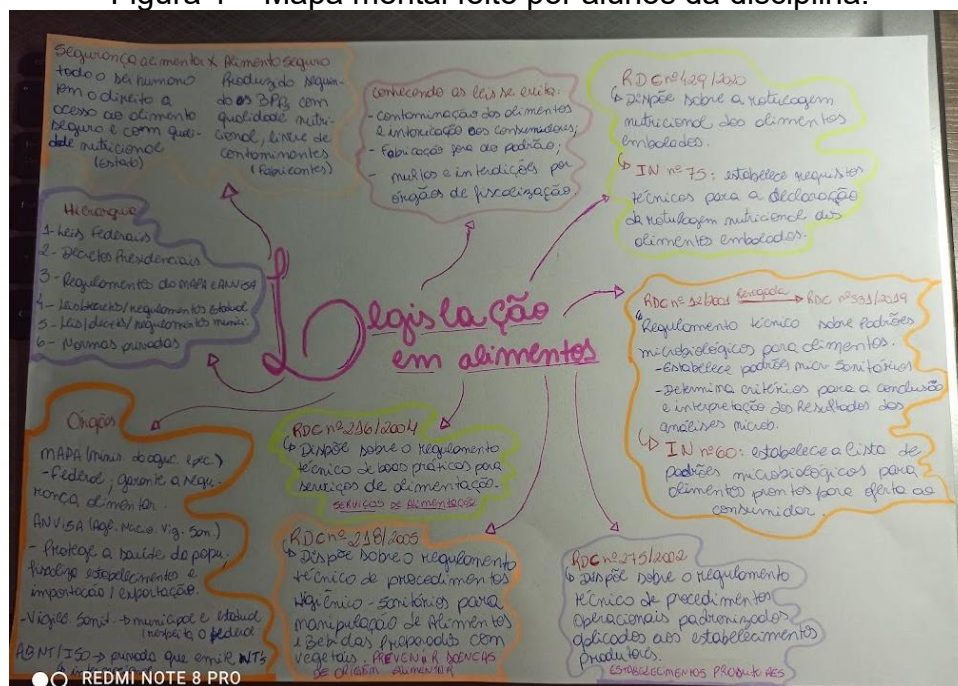 Figura 1 – Mapa mental feito por alunos da disciplina.
Segurança alimentar x Alimento seguro
todo o ser humano
tem o direito a
acesso ao alimento
seguro e com quali-
dade nutricional
(Estado)
Produzido segun-
do as BPFs com
qualidade nutri-
cional, livre de
contaminantes
(Fabricantes)
conhecendo as leis se evita:
- contaminação dos alimentos
e intoxicação dos consumidores;
- Fabricação fora do padrão;
- multas e interdições por
órgãos de fiscalização
RDC nº 429/2020
Dispõe sobre a rotulagem
nutricional dos alimentos
embalados.
IN nº 75: estabelece requisitos
técnicos para a declaração
da rotulagem nutricional dos
alimentos embalados.
Hierarquia
1- Leis Federais
2- Decretos Presidenciais
3- Regulamentos do MAPA e ANVISA
4- Leis/decretos/regulamentos estadual
5- Leis/decretos/regulamentos munici.
6- Normas privadas
Legislação
em alimentos
RDC nº 12/2001 Revogada RDC nº 331/2019
Regulamento técnico sobre Padrões
microbiológicos para alimentos.
- Estabelece padrões micr. sanitários
- Determina critérios para a conclusão
e interpretação dos Resultados das
análises microb.
IN nº 60: estabelece a lista de
padrões microbiológicos para
alimentos prontos para oferta ao
consumidor.
Órgãos
MAPA (minis. da agric. e pec.)
- Federal; garante a segu-
rança alimentar.
ANVISA (agê. nacio. vig. san.)
- Protege a saúde da popu,
fiscaliza estabelecimentos e
importação/exportação.
- Vigilâ. Sanit. → municipal e estadual
(respeita o federal
ABNT/ISO → privada que emite NTs
RDC nº 216/2004
Dispõe sobre o regulamento
técnico de boas práticas para
serviços de alimentação.
SERVIÇOS DE ALIMENTAÇÃO
RDC nº 218/2005
Dispõe sobre o regulamento
técnico de procedimentos
Higiênico-Sanitários para
manipulação de Alimentos
e Bebidas Preparados com
vegetais. PREVENIR DOENÇAS
DE ORIGEM ALIMENTAR
RDC nº 275/2002
Dispõe sobre o regulamento
técnico de procedimentos
Operacionais padronizados
aplicados aos estabelecimentos
produtores.
ESTABELECIMENTOS PRODUTORES
REDMI NOTE 8 PRO